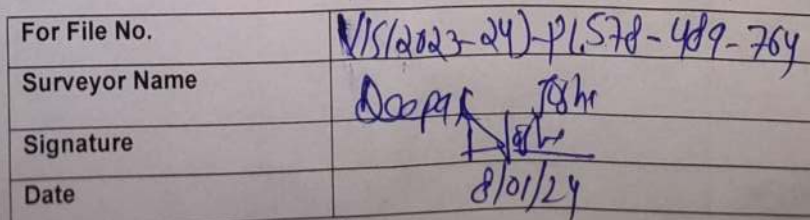 For File No. VIS(2023-24)-PL578-489-764
Surveyor Name Deepak Joshi
Signature
Date 8/01/24